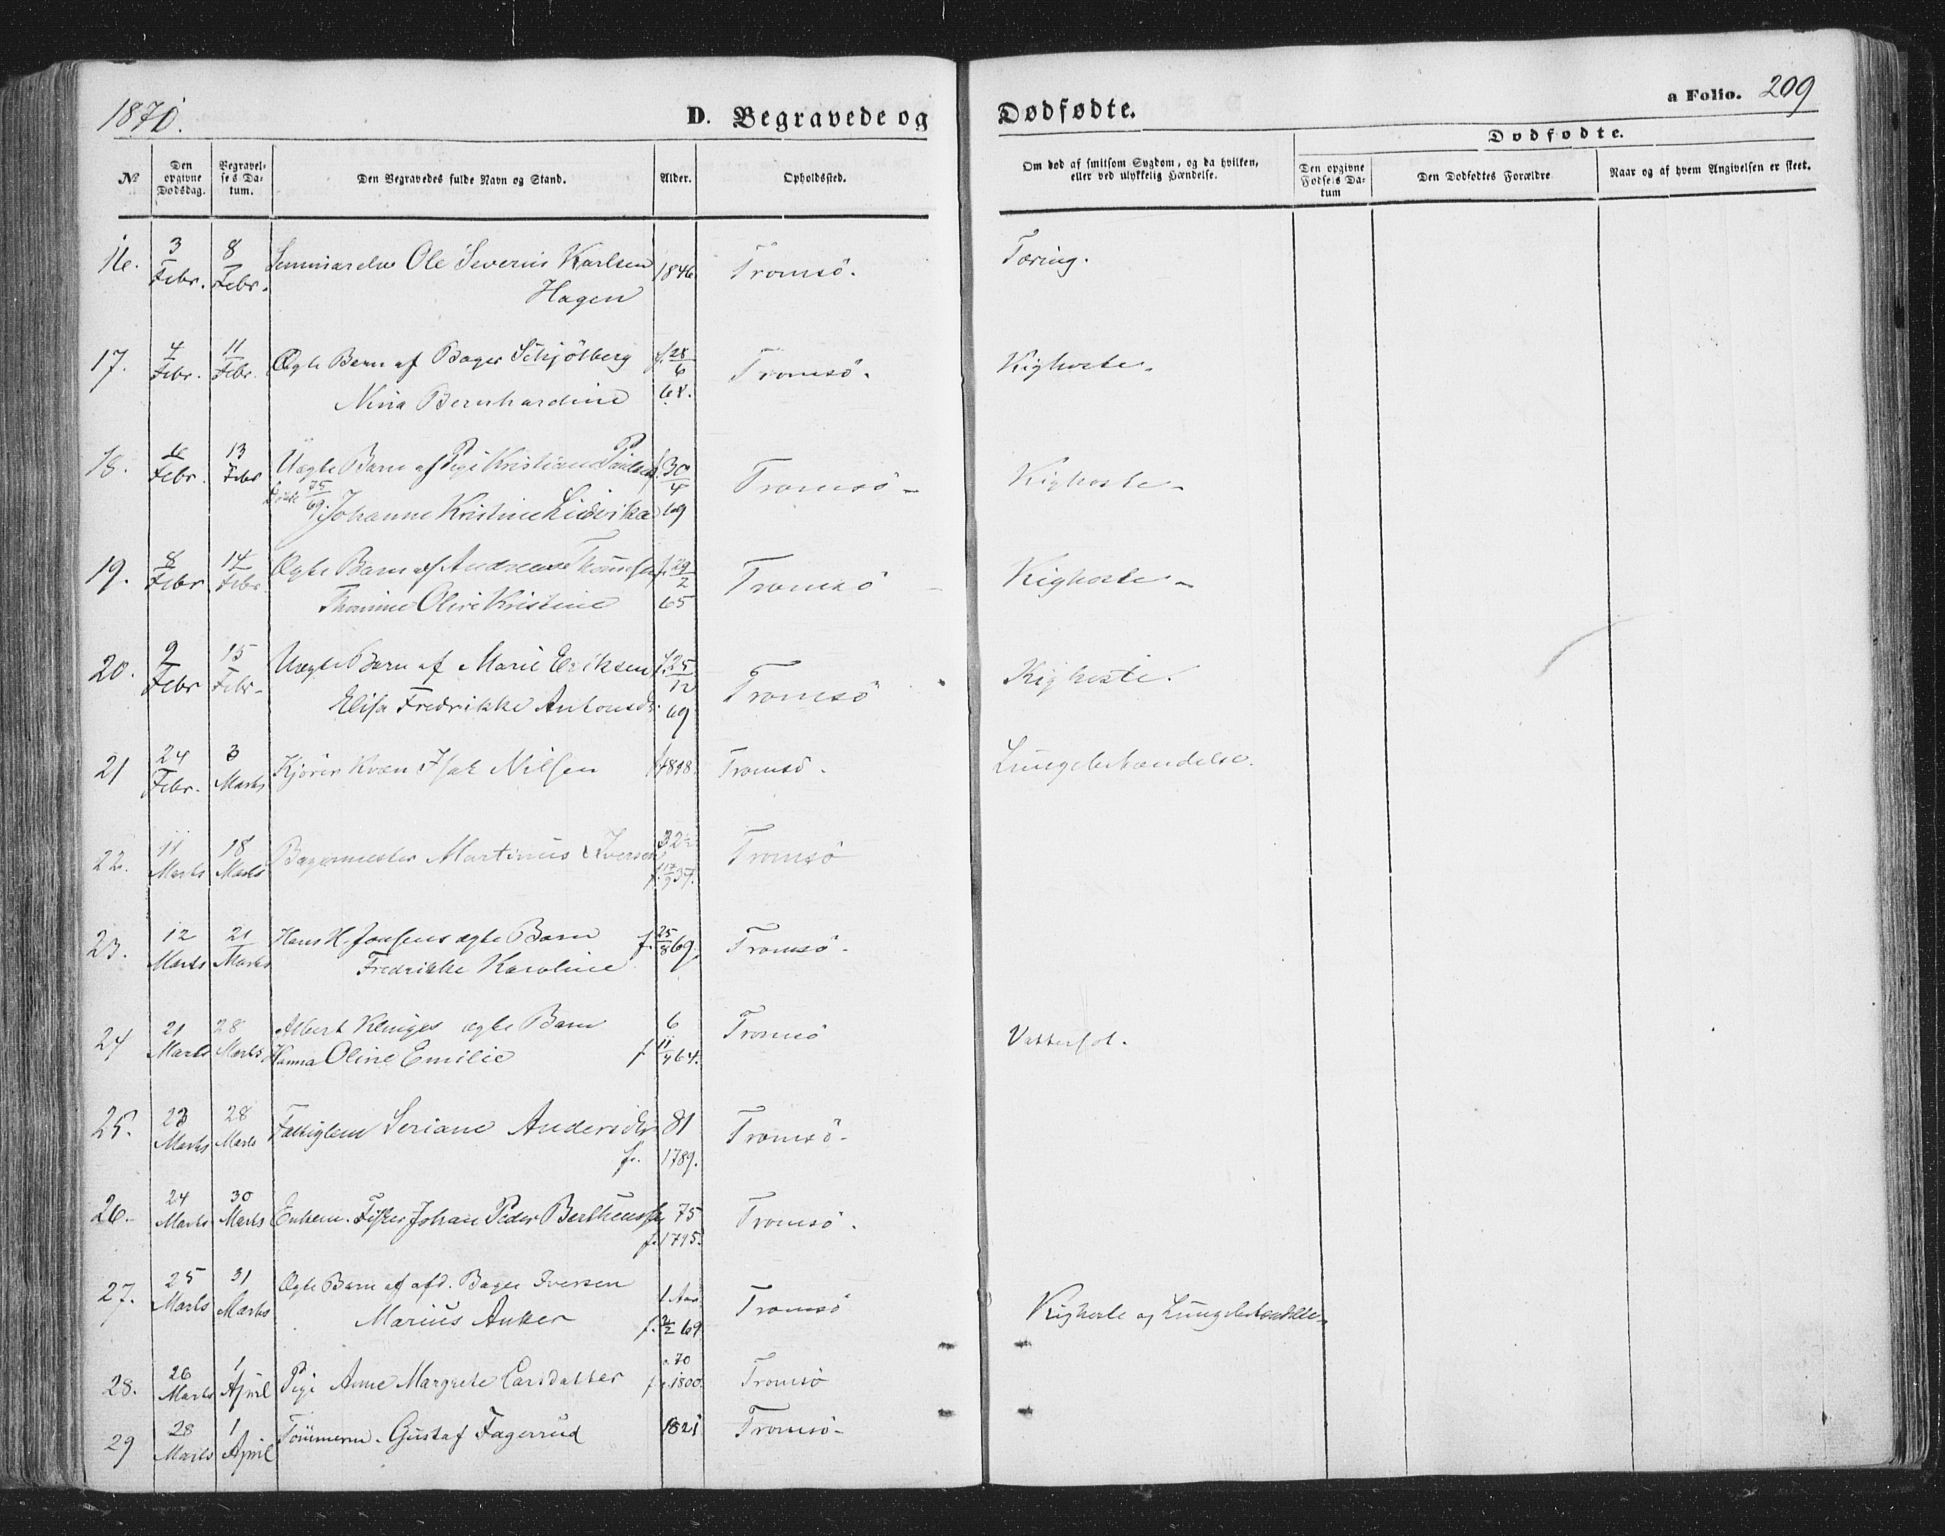 1870.
D. Begravede og Dødfødte.
a Folio. 209
Dødfødte.
No
Den opgivne Dødsdag.
Begravelses Datum.
Den Begravedes fulde Navn og Stand.
Alder.
Opholdssted.
Om død af smitsom Sygdom, og da hvilken, eller ved ulykkelig Hændelse.
Den opgivne Fødsels Datum
Den Dødfødtes Forældre
Naar og af hvem Angivelsen er skeet.
16. 3 Febr. 8 Febr. Ole Severin Karlsen 1846 Tromsö. Tæring.
Hagen
17. 4 Febr. 11 Febr. Ægte Barn af Bager Schjölberg f. 28/6 68. Tromsö. Kighoste.
Nina Bernhardine
18. 6 Febr. 13 Febr Uægte Barn af Pige Kristiane f. 30/4 69 Tromsö Kighoste
Johanne Kristine
19. 8 Febr 14 Febr Ægte Barn af Andreas Thomsen f. 29/2 65 Tromsö Kighoste
Thomine Olive Kristine
20. 9 Febr 15 Febr Uægte Barn af Marie Eriksen f. 25/12 69 Tromsö Kighoste.
Elisa Fredrikke Antonsdr
21 24 Febr. 3 Marts Kven Isak Nilsen Tromsö. Lungebetændelse.
22. 11 Marts 18 Marts Bagermester Martinus Iversen 32 Tromsö
23. 12 Marts 21 Marts Hans H. Jensens ægte Barn f. 25/8 69. Tromsö.
Fredrikke Karoline
24 21 Marts 28 Marts Albert ægte Barn 6 Tromsö
Hanna Oline Emilie f 11/4 64.
25. 23 Marts 28 Marts Fattiglem Seriane Andersdr 81 Tromsö.
f. 1789.
26. 24 Marts 30 Marts Enkem. Fisker Johan Peder 75 Tromsö.
f. 1795.
27. 25 Marts 31 Marts Ægte Barn af afd. Bager Iversen 1 Aar Tromsö Kighoste og Lungebetændelse
Marius Anker f. 69
28. 26 Marts 1 April Pige Anne Margrete Carsdatter 70 f. 1800. Tromsö
29 28 Marts 1 April Tömmerm. Gustaf Fagerrud 1821 Tromsö